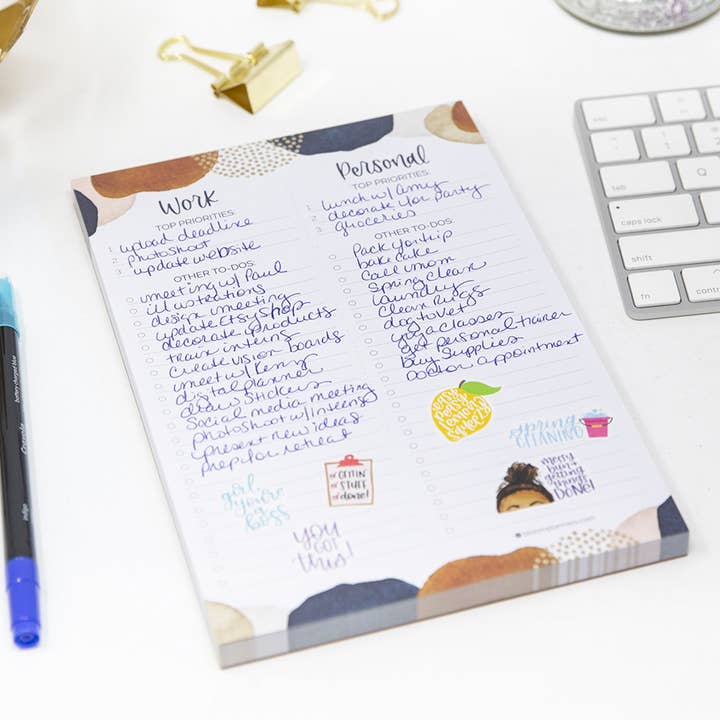 Work
TOP PRIORITIES:
1 upload deadline
2 photoshoot
3 update website
OTHER TO-DOS:
meeting w/ Paul
illustrations
design meeting
update Etsy Shop
decorate products
train interns
create vision boards
meet w/ Kenny
digital planner
draw stickers
Social media meeting
photoshoot w/ interns
present new ideas
prep for retreat
girl you're a boss
GETTIN' STUFF done!
YOU GOT this!
Personal
TOP PRIORITIES:
1 lunch w/ Amy
2 decorate for party
3 groceries
OTHER TO-DOS:
Pack for trip
bake cake
call mom
Spring clean
laundry
clean rugs
dog to vet
yoga classes
get personal trainer
buy supplies
Doctor appointment
easy peasy lemon squeezy
spring CLEANING
messy bun & getting things DONE!
esc
tab
caps lock
shift
fn
control
indigo